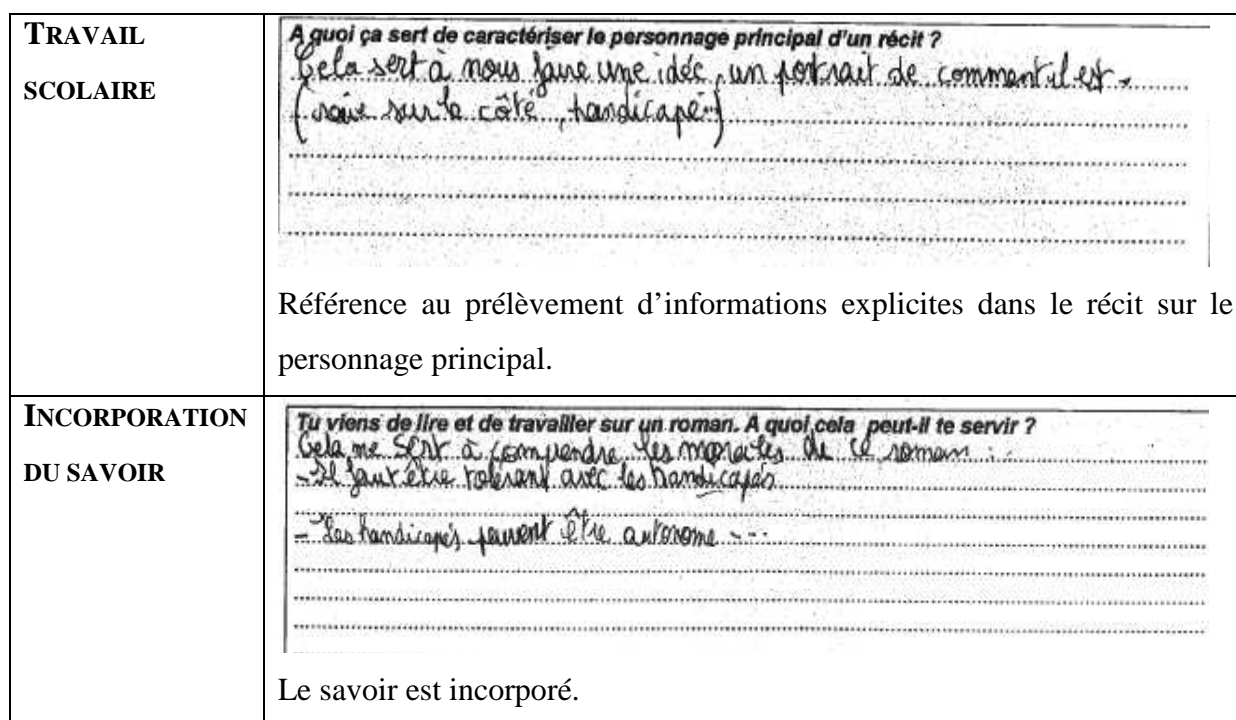 TRAVAIL
SCOLAIRE
A quoi ça sert de caractériser le personnage principal d'un récit ?
Cela sert à nous faire une idée, un portrait de comment il est.
( sur le côté, handicapé...)
Référence au prélèvement d'informations explicites dans le récit sur le
personnage principal.
INCORPORATION
DU SAVOIR
Tu viens de lire et de travailler sur un roman. A quoi cela peut-il te servir ?
Cela me sert à comprendre les morales de ce roman :
- Il faut être tolérant avec les handicapés
- Les handicapés peuvent être autonome ---
Le savoir est incorporé.